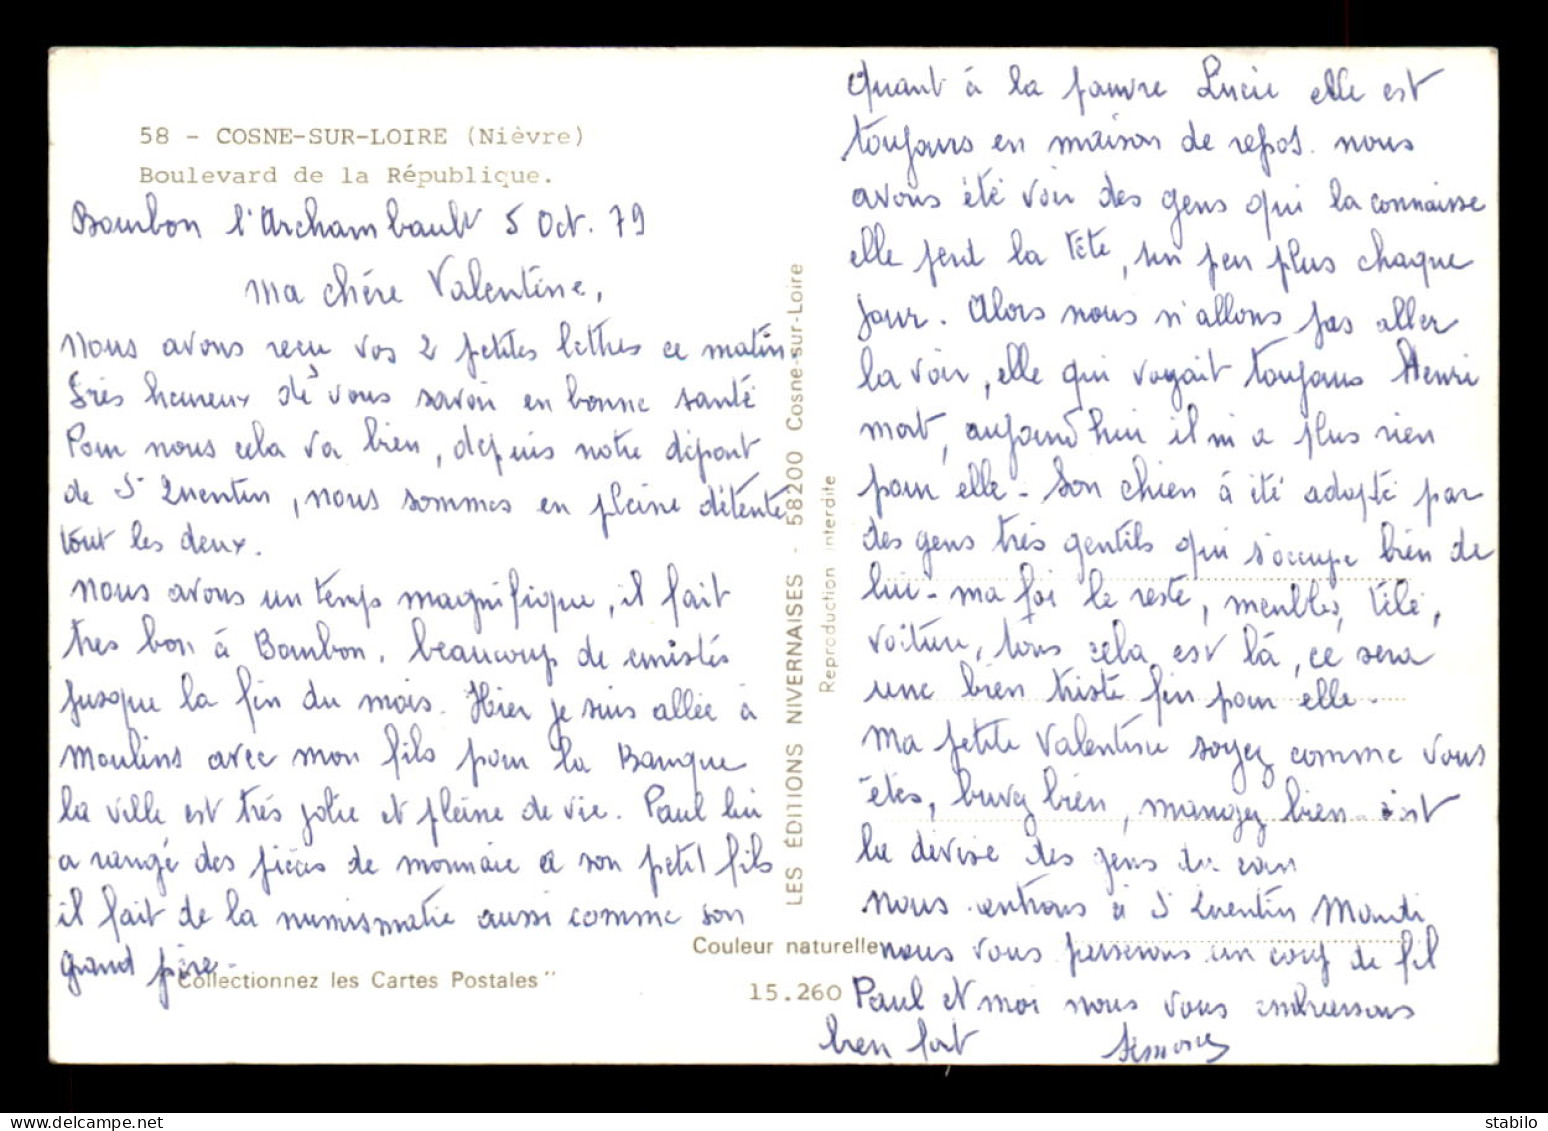 58 - COSNE-SUR-LOIRE (Nièvre)
Boulevard de la République.
Bourbon l'Archambault 5 Oct. 79
Ma chère Valentine,
Nous avons reçu vos 2 petites lettres ce matin
très heureux de vous savoir en bonne santé
Pour nous cela va bien, depuis notre départ
de St Quentin, nous sommes en pleine détente
tout les deux.
Nous avons un temps magnifique, il fait
tres bon à Bourbon, beaucoup de curistes
jusque la fin du mois. Hier je suis allée à
Moulins avec mon fils pour la Banque
la ville est très jolie et pleine de vie. Paul lui
a rangé des pièces de monnaie a son petit fils
il fait de la numismatie aussi comme son
grand père -
"Collectionnez les Cartes Postales"
LES ÉDITIONS NIVERNAISES - 58200 Cosne-sur-Loire
Reproduction interdite
Couleur naturelle
15.260
Quant à la pauvre Lucie elle est
toujours en maison de repos. nous
avons été voir des gens qui la connaisse
elle perd la tête, un peu plus chaque
jour. Alors nous n'allons pas aller
la voir, elle qui voyait toujours Henri
mort, aujourd'hui il ni a plus rien
pour elle - Son chien à été adopté par
des gens très gentils qui s'occupe bien de
lui - ma foi le reste, meubles, télé,
voiture, tous cela est là, ce sera
une bien triste fin pour elle -
Ma petite Valentine soyez comme vous
êtes, buvez bien, mangez bien c'est
la devise des gens du coin
Nous rentrons à St Quentin Mardi
nous vous passerons un coup de fil
Paul et moi nous vous embrassons
bien fort Simone
stabilo